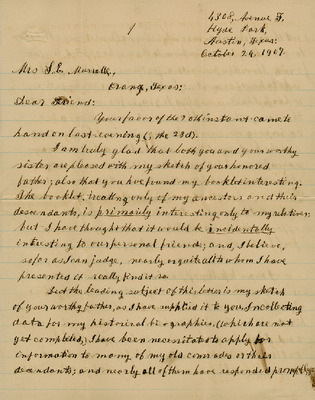 1
4308, Avenue F.
Hyde Park,
Austin, Texas:
October 24, 1907.
Mrs. S. E.
Orange, Texas;
Dear Friend:
Your favor of the 20th instant came to
hand on last evening (the 23d).
I am truly glad that both you and your worthy
sister are pleased with my sketch of your honored
father; also that you have found my booklet interesting.
The booklet, treating only of my ancestors and their
descendants, is primarily interesting only to my relatives;
but I have thought that it would be incidentally
interesting to our personal friends; and, I believe,
so far as I can judge, nearly or quite all to whom I have
presented it really find it so.
But the leading subject of this letter is my sketch
of your worthy father, as I have supplied it to you. In collecting
data for my historical biographies, (which are not
yet completed,) I have been necessitated to apply for
information to many of my old comrades or their
descendants; and nearly all of them have responded promptly